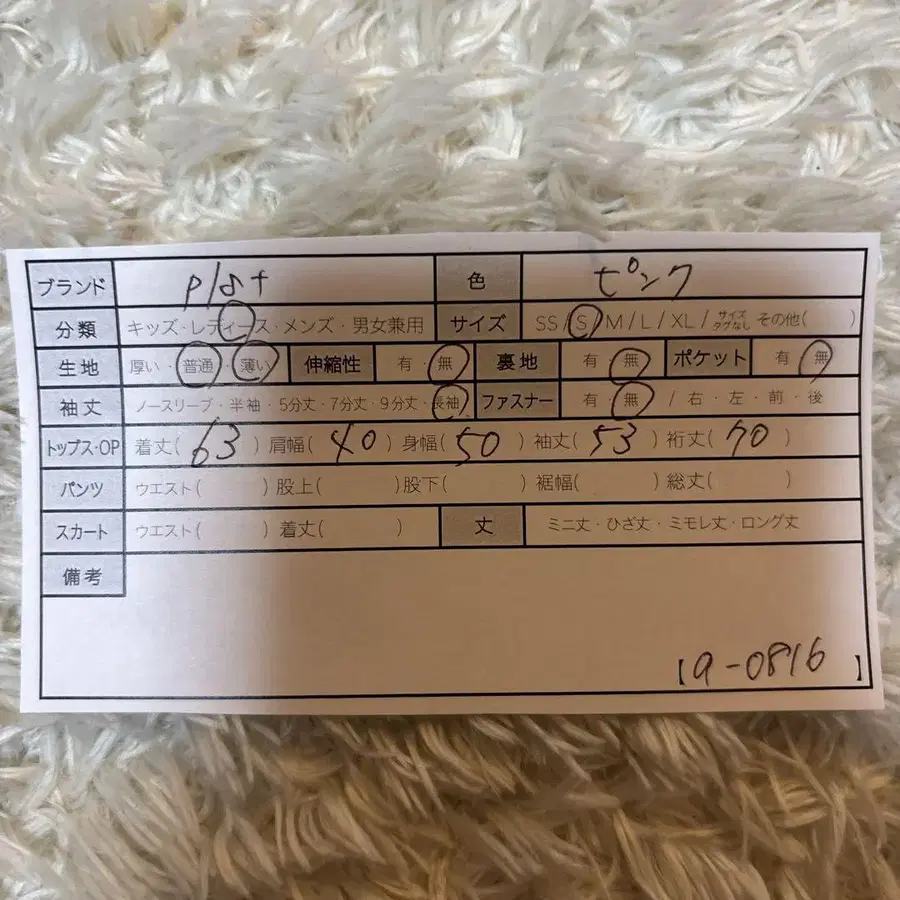 ブランド plst 色 ピンク
分類 キッズ・レディース・メンズ・男女兼用 サイズ SS/S/M/L/XL/サイズタグなし その他( )
生地 厚い・普通・薄い 伸縮性 有・無 裏地 有・無 ポケット 有・無
袖丈 ノースリーブ・半袖・5分丈・7分丈・9分丈・長袖 ファスナー 有・無 / 右・左・前・後
トップス・OP 着丈(63) 肩幅(40) 身幅(50) 袖丈(53) 裄丈(70)
パンツ ウエスト( ) 股上( ) 股下( ) 裾幅( ) 総丈( )
スカート ウエスト( ) 着丈( ) 丈 ミニ丈・ひざ丈・ミモレ丈・ロング丈
備考
【a-0816】